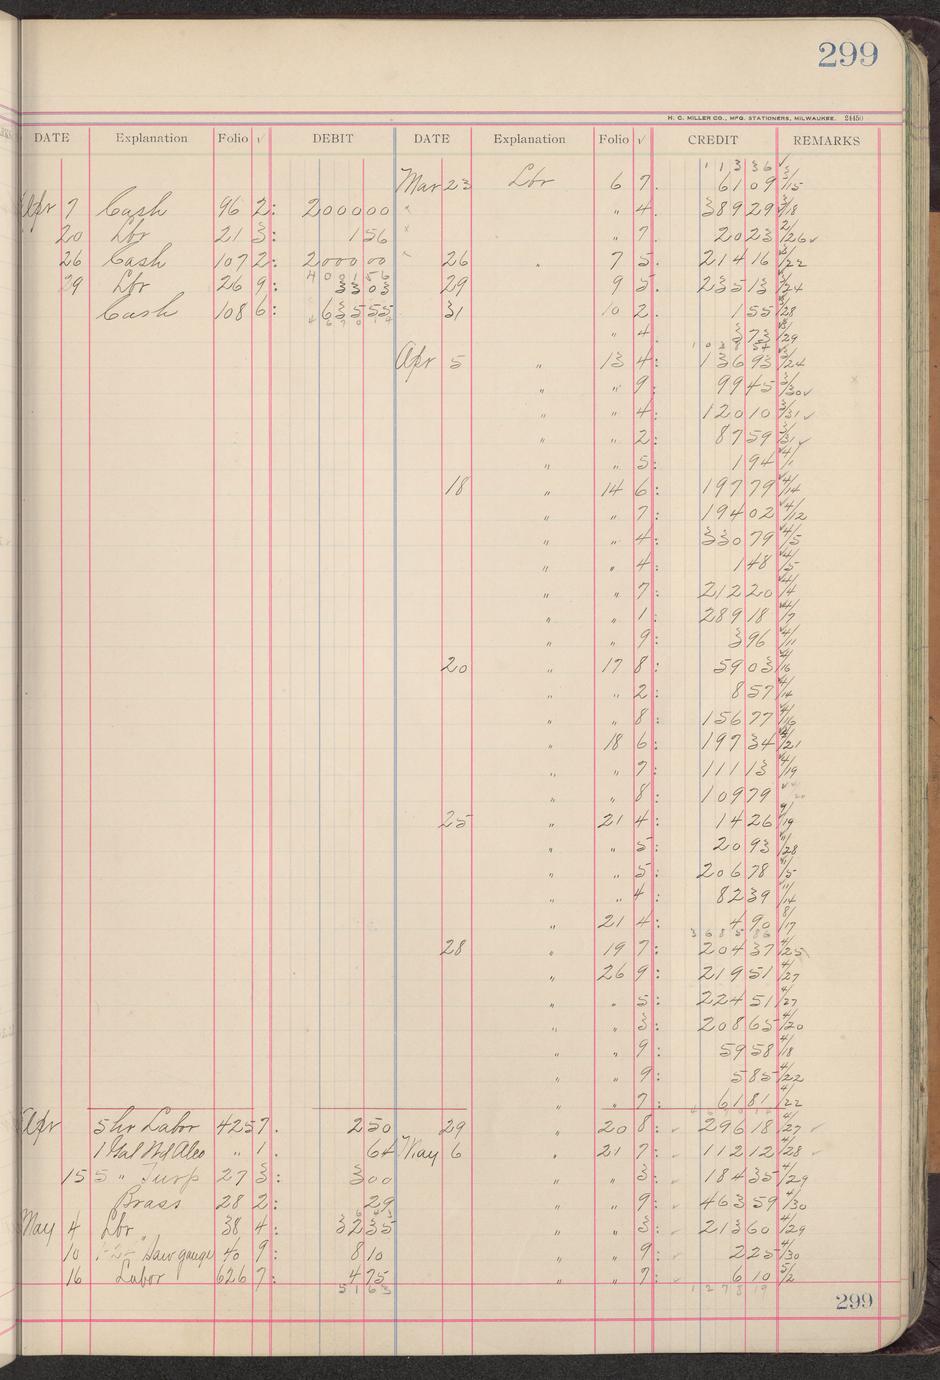 299
H. C. MILLER CO., MFG. STATIONERS, MILWAUKEE. 24450
DATE Explanation Folio √ DEBIT DATE Explanation Folio √ CREDIT REMARKS
1 1 3 3 6
Mar 23 Lbr 6 7. 61 09 3/15
Apr 7 Cash 96 2: 2000 00 " 4. 389 29 3/18
20 Lbr 21 3: 1 56 " 7. 20 23 2/26 ✓
26 Cash 107 2: 2000 00 26 " 7 5. 214 16 3/22
4 0 0 1 5 6
29 Lbr 26 9: 33 03 29 9 5. 235 13 3/24
Cash 108 6: 635 55 31 10 2. 1 55 3/28
" 4 3 73 3/29
Apr 5 " 13 4: 136 93 3/24
" " 9: 99 45 3/30 ✓
" " 4: 120 10 3/31 ✓
" " 2: 87 59 3/31 ✓
" " 5: 1 94 4/1
18 " 14 6: 197 79 4/14
" " 7: 194 02 4/12
" " 4: 330 79 4/5
" " 4: 1 48 4/5
" " 7: 212 20 4/4
" " 1: 289 18 4/7
" " 9: 3 96 4/11
20 " 17 8: 59 03 4/16
" " 2: 8 57 4/14
" " 8: 156 77 4/16
" 18 6: 197 34 4/21
" " 7: 111 13 4/19
" " 8: 109 79
25 " 21 4: 14 26 9/19
" " 5: 20 93 11/28
" " 5: 206 78 11/5
" " 4: 82 39 11/14
" 21 4: 4 90 8/17
3 6 8 5 8 6
28 " 19 7: 204 37 4/25
" 26 9: 219 51 4/27
" " 5: 224 51 4/27
" " 3: 208 65 4/20
" " 9: 59 58 4/18
" " 9: 5 85 4/22
" " 7: 61 81 4/22
Apr 5 hr Labor 425 7. 2 50 29 " 20 8: 296 18 4/27
1 Gal Wd Alco " 1. 64 May 6 " 21 7: 112 12 4/28
15 5 " Turp 27 3: 3 00 " " 3: 184 35 4/29
Brass 28 2: 29 " " 9: 463 59 4/30
May 4 Lbr 38 4: 32 35 " " 3: 213 60 4/29
10 Saw gauge 40 9: 8 10 " " 9: 2 25 4/30
16 Labor 626 7: 4 75 " " 7: 6 10 5/2
5 1 6 3 1 2 7 8 19
299